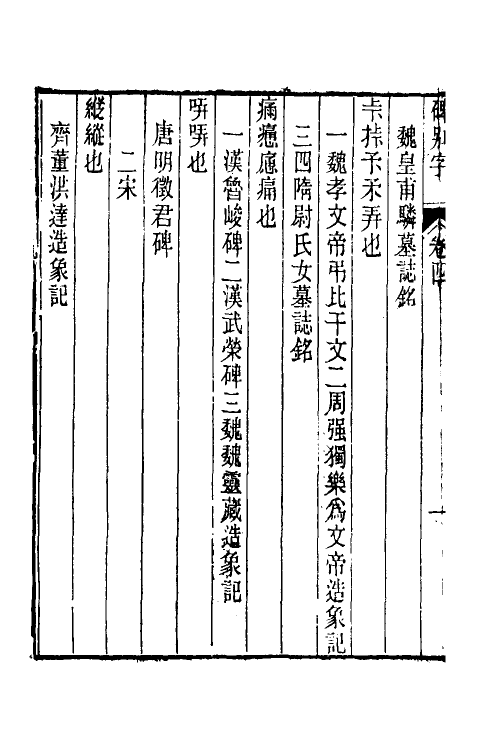 碑別字 卷四
魏皇甫驎墓誌銘
卡挊予禾弄也
一魏孝文帝弔比干文二周强獨樂為文帝造象記
三四隋尉氏女墓誌銘
痛㾓㾯痛也
一漢魯峻碑二漢武榮碑三魏魏靈藏造象記
哢哢也
唐明徵君碑
二宋
縱縱也
齊董洪達造象記